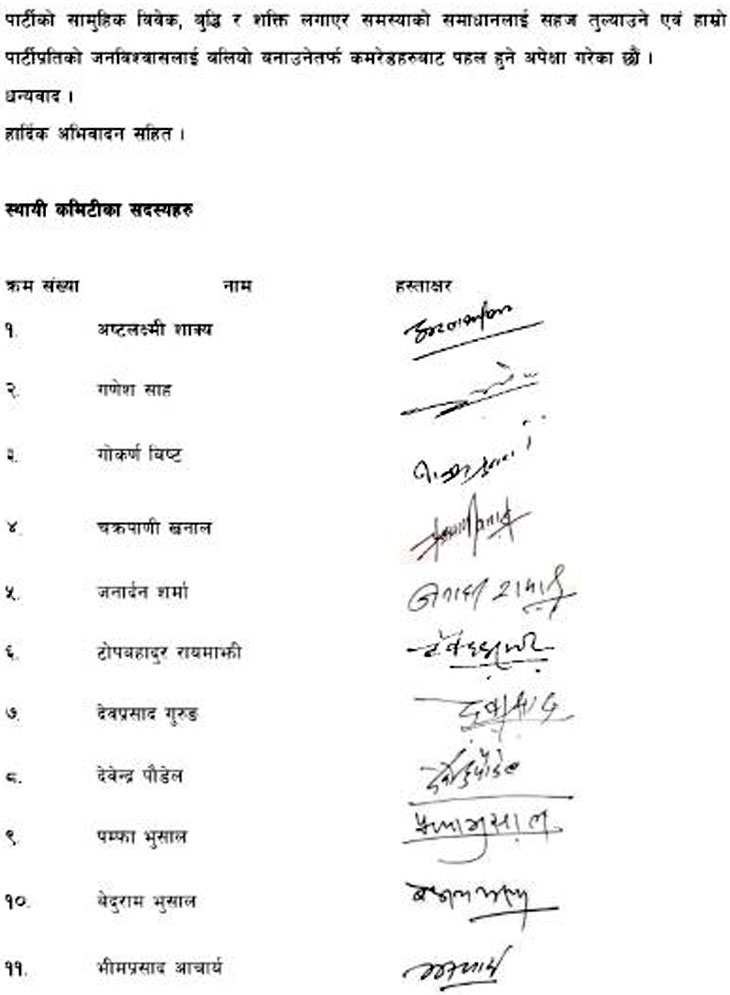 पार्टीको सामुहिक विवेक, बुद्धि र शक्ति लगाएर समस्याको समाधानलाई सहज तुल्याउने एवं हाम्रो
पार्टीप्रतिको जनविश्वासलाई बलियो बनाउनेतर्फ कमरेडहरुबाट पहल हुने अपेक्षा गरेका छौं ।
धन्यवाद ।
हार्दिक अभिवादन सहित ।
स्थायी कमिटीका सदस्यहरु
क्रम संख्या नाम हस्ताक्षर
१. अष्टलक्ष्मी शाक्य
२. गणेश साह
३. गोकर्ण बिष्ट
४. चक्रपाणी खनाल
५. जनार्दन शर्मा
६. टोपबहादुर रायमाझी
७. देवप्रसाद गुरुङ
८. देवेन्द्र पौडेल देवेन्द्र पौडेल
९. पम्फा भुसाल पम्फा भुसाल
१०. बेदुराम भुसाल
११. भीमप्रसाद आचार्य